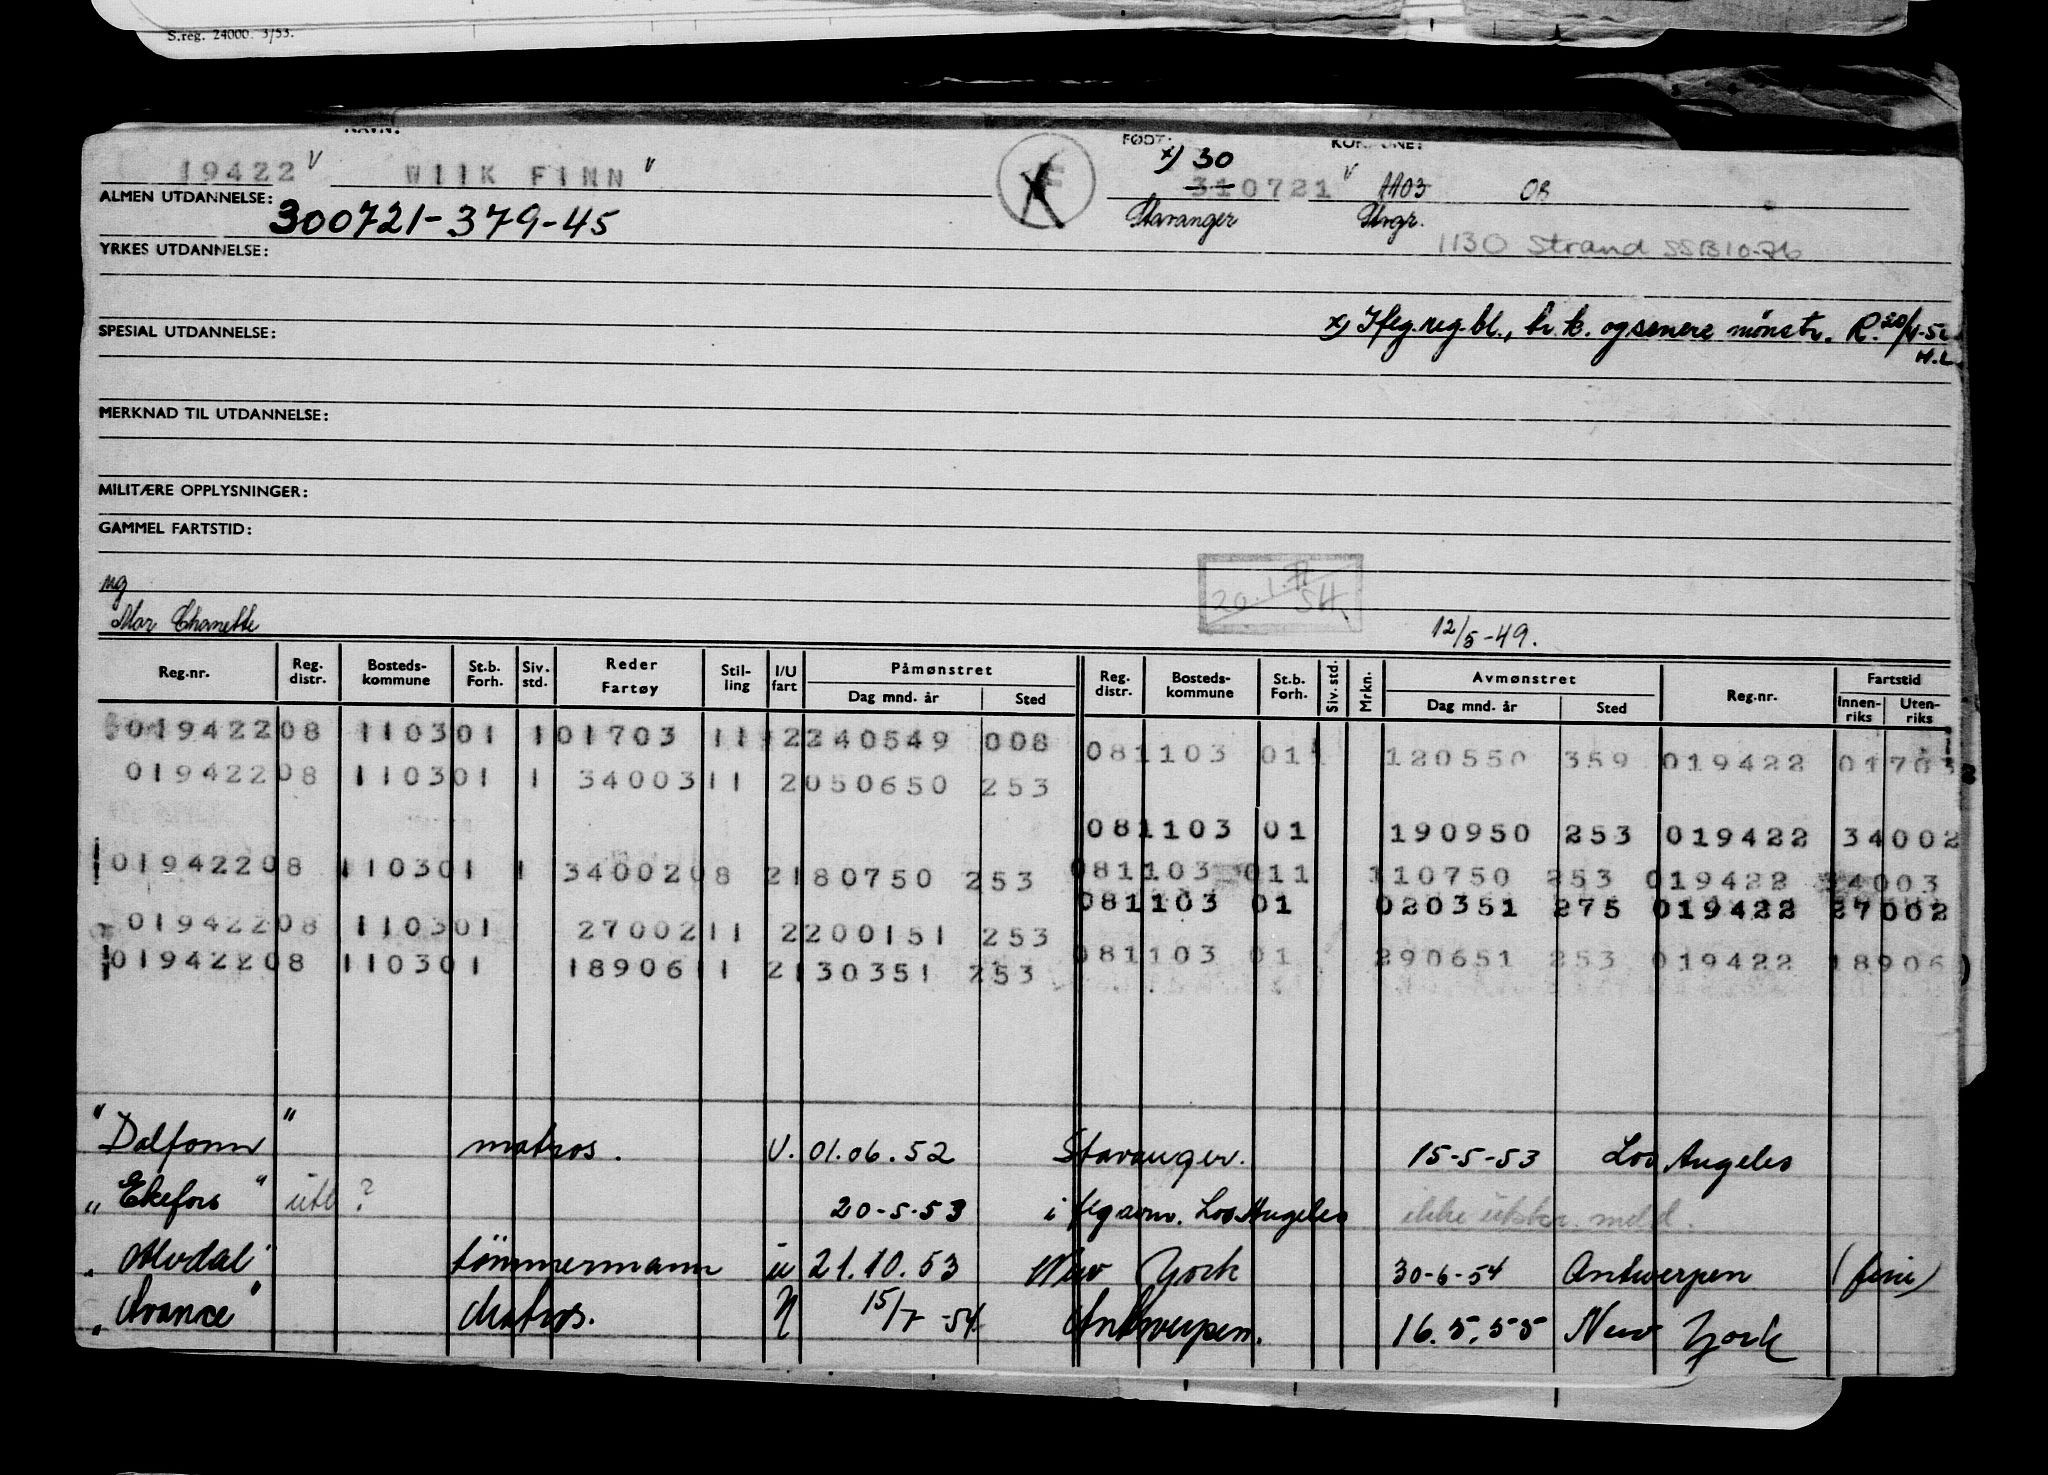 S.reg. 24000. 3/53.
NAVN: FØDT: KOMMUNE:
x) 30
19422 v WIIK FINN " 310721 v 1103 OB
ALMEN UTDANNELSE: 300721-379-45 Stavanger Stvgr.
YRKES UTDANNELSE: 1130 Strand SSB10-76
SPESIAL UTDANNELSE: x) Iføg.reg.bl., br.k. og senere mønstr. R. 20/
H.L
MERKNAD TIL UTDANNELSE:
MILITÆRE OPPLYSNINGER:
GAMMEL FARTSTID:
ug
20.1 54
Mar Chanette 12/5-49.
Reg.nr. Reg. distr. Bosteds-kommune St.b. Forh. Siv. std. Reder Fartøy Stil-ling I/U fart Påmønstret Dag mnd. år Sted Reg. distr. Bosteds-kommune St.b. Forh. Siv. std. Mrkn. Avmønstret Dag mnd. år Sted Reg.nr. Fartstid Innen-riks Uten-riks
01942208 110301 101703 11 2240549 008
081103 011 120550 359 019422 01703
01942208 110301 1 340031 1 2050650 253
081103 01 190950 253 019422 34002
01942208 110301 1 3400208 2180750 253
081103 011 110750 253 019422 34003
081103 01 020351 275 019422 27002
01942208 110301 2700211 2200151 253
081103 01 290651 253 019422 18906
01942208 110301 1890611 2130351 253
"Dalfonn" matros. U. 01.06.52 Stavanger. 15-5-53 Los Angeles
"Ekefors" utl ? 20-5-53 i flg avm. Los Angeles ikke utskr. meld.
"Alvdal" tömmermann u 21.10.53 New York 30-6-54 Antwerpen
"Avance" Matros. U 15/7-54 Antwerpen. 16.5.55 New York